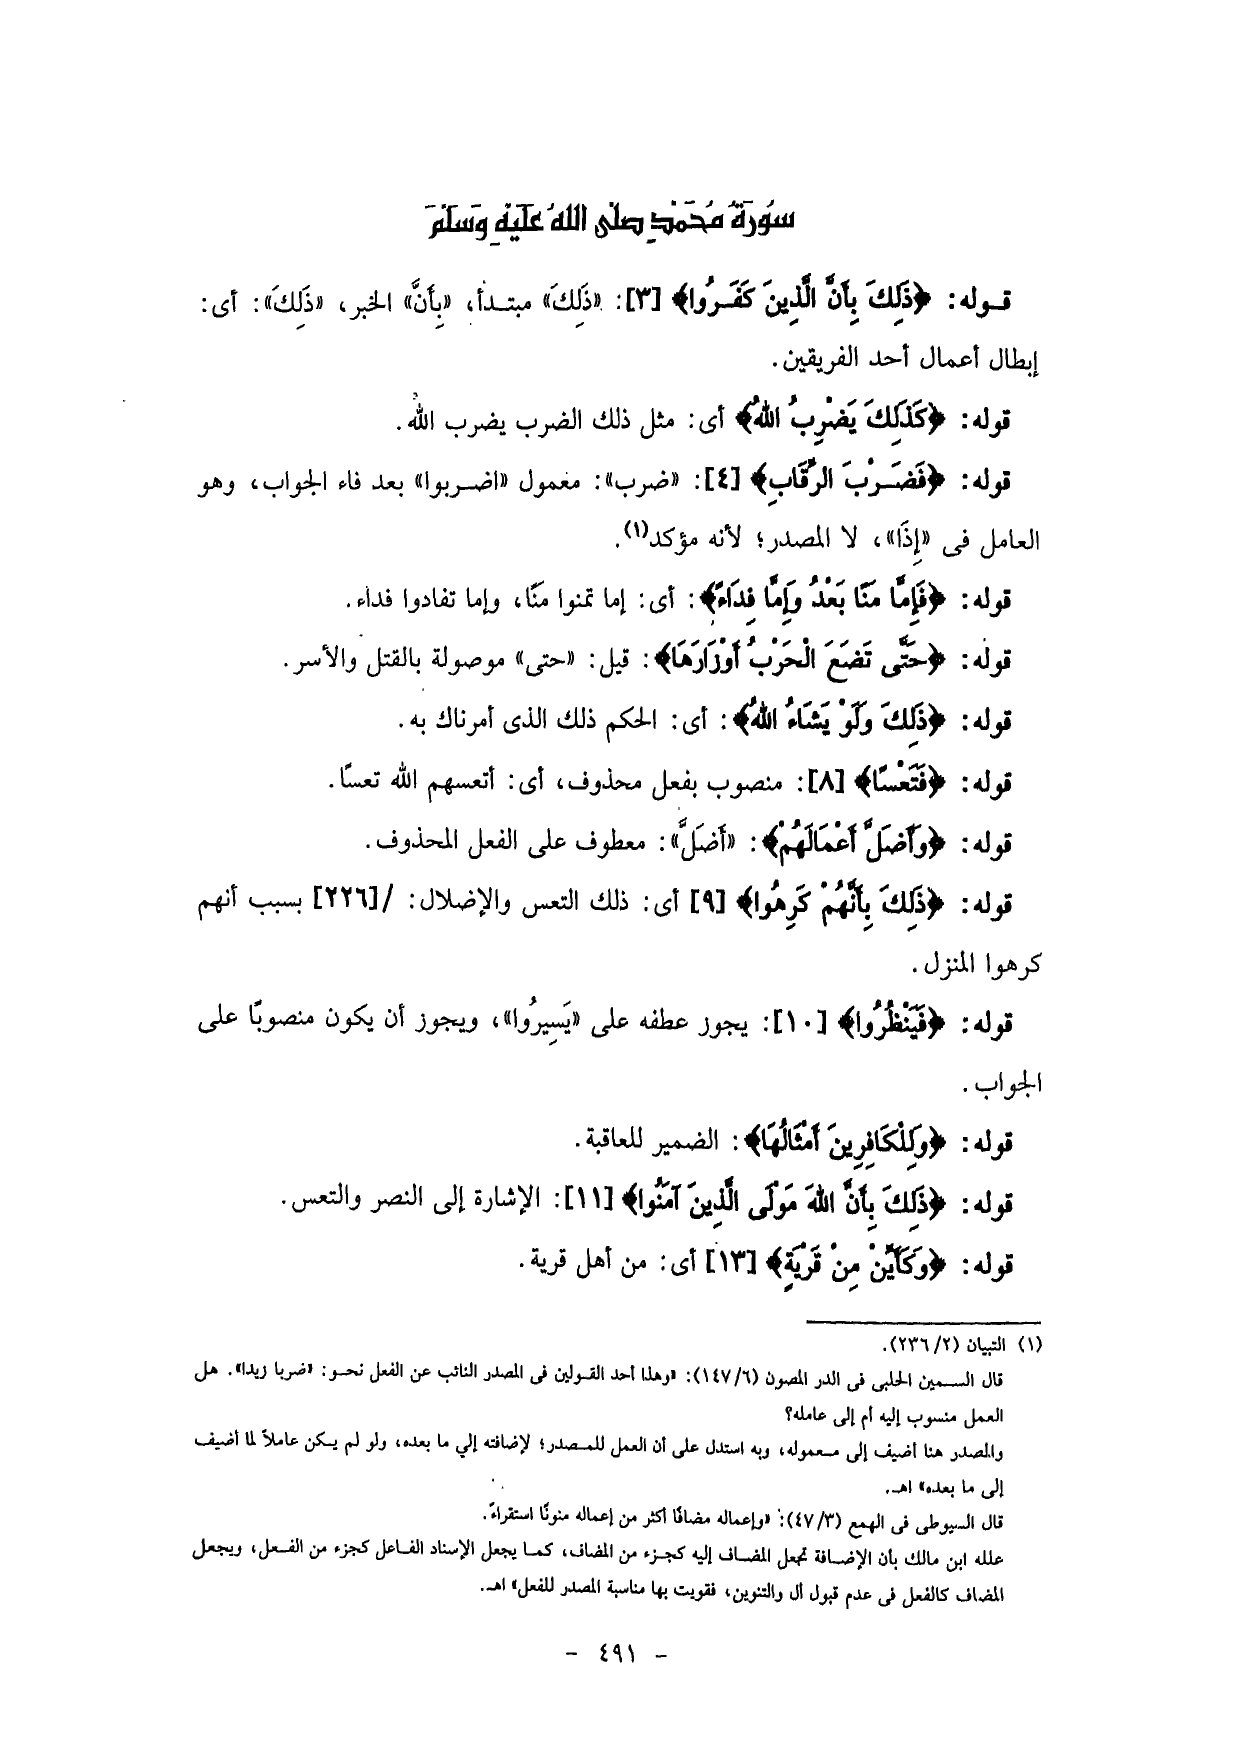 سُورَةُ مُحَمَّدٍ صَلَّى اللهُ عَلَيْهِ وَسَلَّمَ
قـوله: ﴿ذَلِكَ بِأَنَّ الَّذِينَ كَفَـرُوا﴾ [٣]: «ذَلِكَ» مبتـدأ، «بِأَنَّ» الخبر، «ذَلِكَ»: أى:
إبطال أعمال أحد الفريقين.
قوله: ﴿كَذَلِكَ يَضْرِبُ اللهُ﴾ أى: مثل ذلك الضرب يضرب اللهُ.
قوله: ﴿فَضَـرْبَ الرِّقَابِ﴾ [٤]: «ضرب»: معمول «اضـربوا» بعد فاء الجواب، وهو
العامل فى «إِذَا»، لا المصدر؛ لأنه مؤكد(١).
قوله: ﴿فَإِمَّا مَنًّا بَعْدُ وَإِمَّا فِدَاءً﴾: أى: إما تمنوا منًّا، وإما تفادوا فداء.
قوله: ﴿حَتَّى تَضَعَ الْحَرْبُ أَوْزَارَهَا﴾: قيل: «حتى» موصولة بالقتل والأسر.
قوله: ﴿ذَلِكَ وَلَوْ يَشَاءُ اللهُ﴾: أى: الحكم ذلك الذى أمرناك به.
قوله: ﴿فَتَعْسًا﴾ [٨]: منصوب بفعل محذوف، أى: أتعسهم الله تعسًا.
قوله: ﴿وَأَضَلَّ أَعْمَالَهُمْ﴾: «أَضَلَّ»: معطوف على الفعل المحذوف.
قوله: ﴿ذَلِكَ بِأَنَّهُمْ كَرِهُوا﴾ [٩] أى: ذلك التعس والإضلال: /[٢٢٦] بسبب أنهم
كرهوا المنزل.
قوله: ﴿فَيَنْظُرُوا﴾ [١٠]: يجوز عطفه على «يَسِيرُوا»، ويجوز أن يكون منصوبًا على
الجواب.
قوله: ﴿وَلِلْكَافِرِينَ أَمْثَالُهَا﴾: الضمير للعاقبة.
قوله: ﴿ذَلِكَ بِأَنَّ اللهَ مَوْلَى الَّذِينَ آمَنُوا﴾ [١١]: الإشارة إلى النصر والتعس.
قوله: ﴿وَكَأَيِّنْ مِنْ قَرْيَةٍ﴾ [١٣] أى: من أهل قرية.
(١) التبيان (٢/ ٢٣٦).
قال السـمين الحلبى فى الدر المصون (٦/ ١٤٧): «وهذا أحد القـولين فى المصدر النائب عن الفعل نحـو: «ضربا زيدا». هل
العمل منسوب إليه أم إلى عامله؟
والمصدر هنا أضيف إلى مـعموله، وبه استدل على أن العمل للمـصدر؛ لإضافته إلي ما بعده، ولو لم يـكن عاملاً لما أضيف
إلى ما بعده» اهـ.
قال السيوطى فى الهمع (٣/ ٤٧): «وإعماله مضافًا أكثر من إعماله منونًا استقراءً.
علله ابن مالك بأن الإضـافة تجعل المضـاف إليه كجـزء من المضاف، كمـا يجعل الإسناد الفـاعل كجزء من الفـعل، ويجعل
المضاف كالفعل فى عدم قبول أل والتنوين، فقويت بها مناسبة المصدر للفعل» اهـ.
- ٤٩١ -